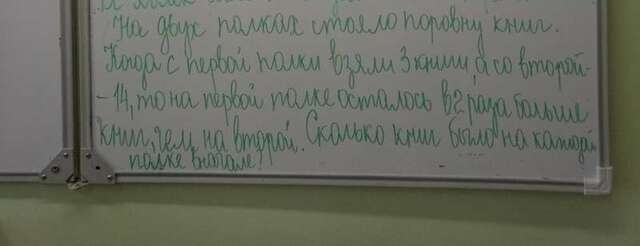 На двух полках стояло поровну книг.
Когда с первой полки взяли 3 книги, а со второй -
- 14, то на первой полке осталось в 2 раза больше
книг, чем на второй. Сколько книг было на каждой
полке вначале?